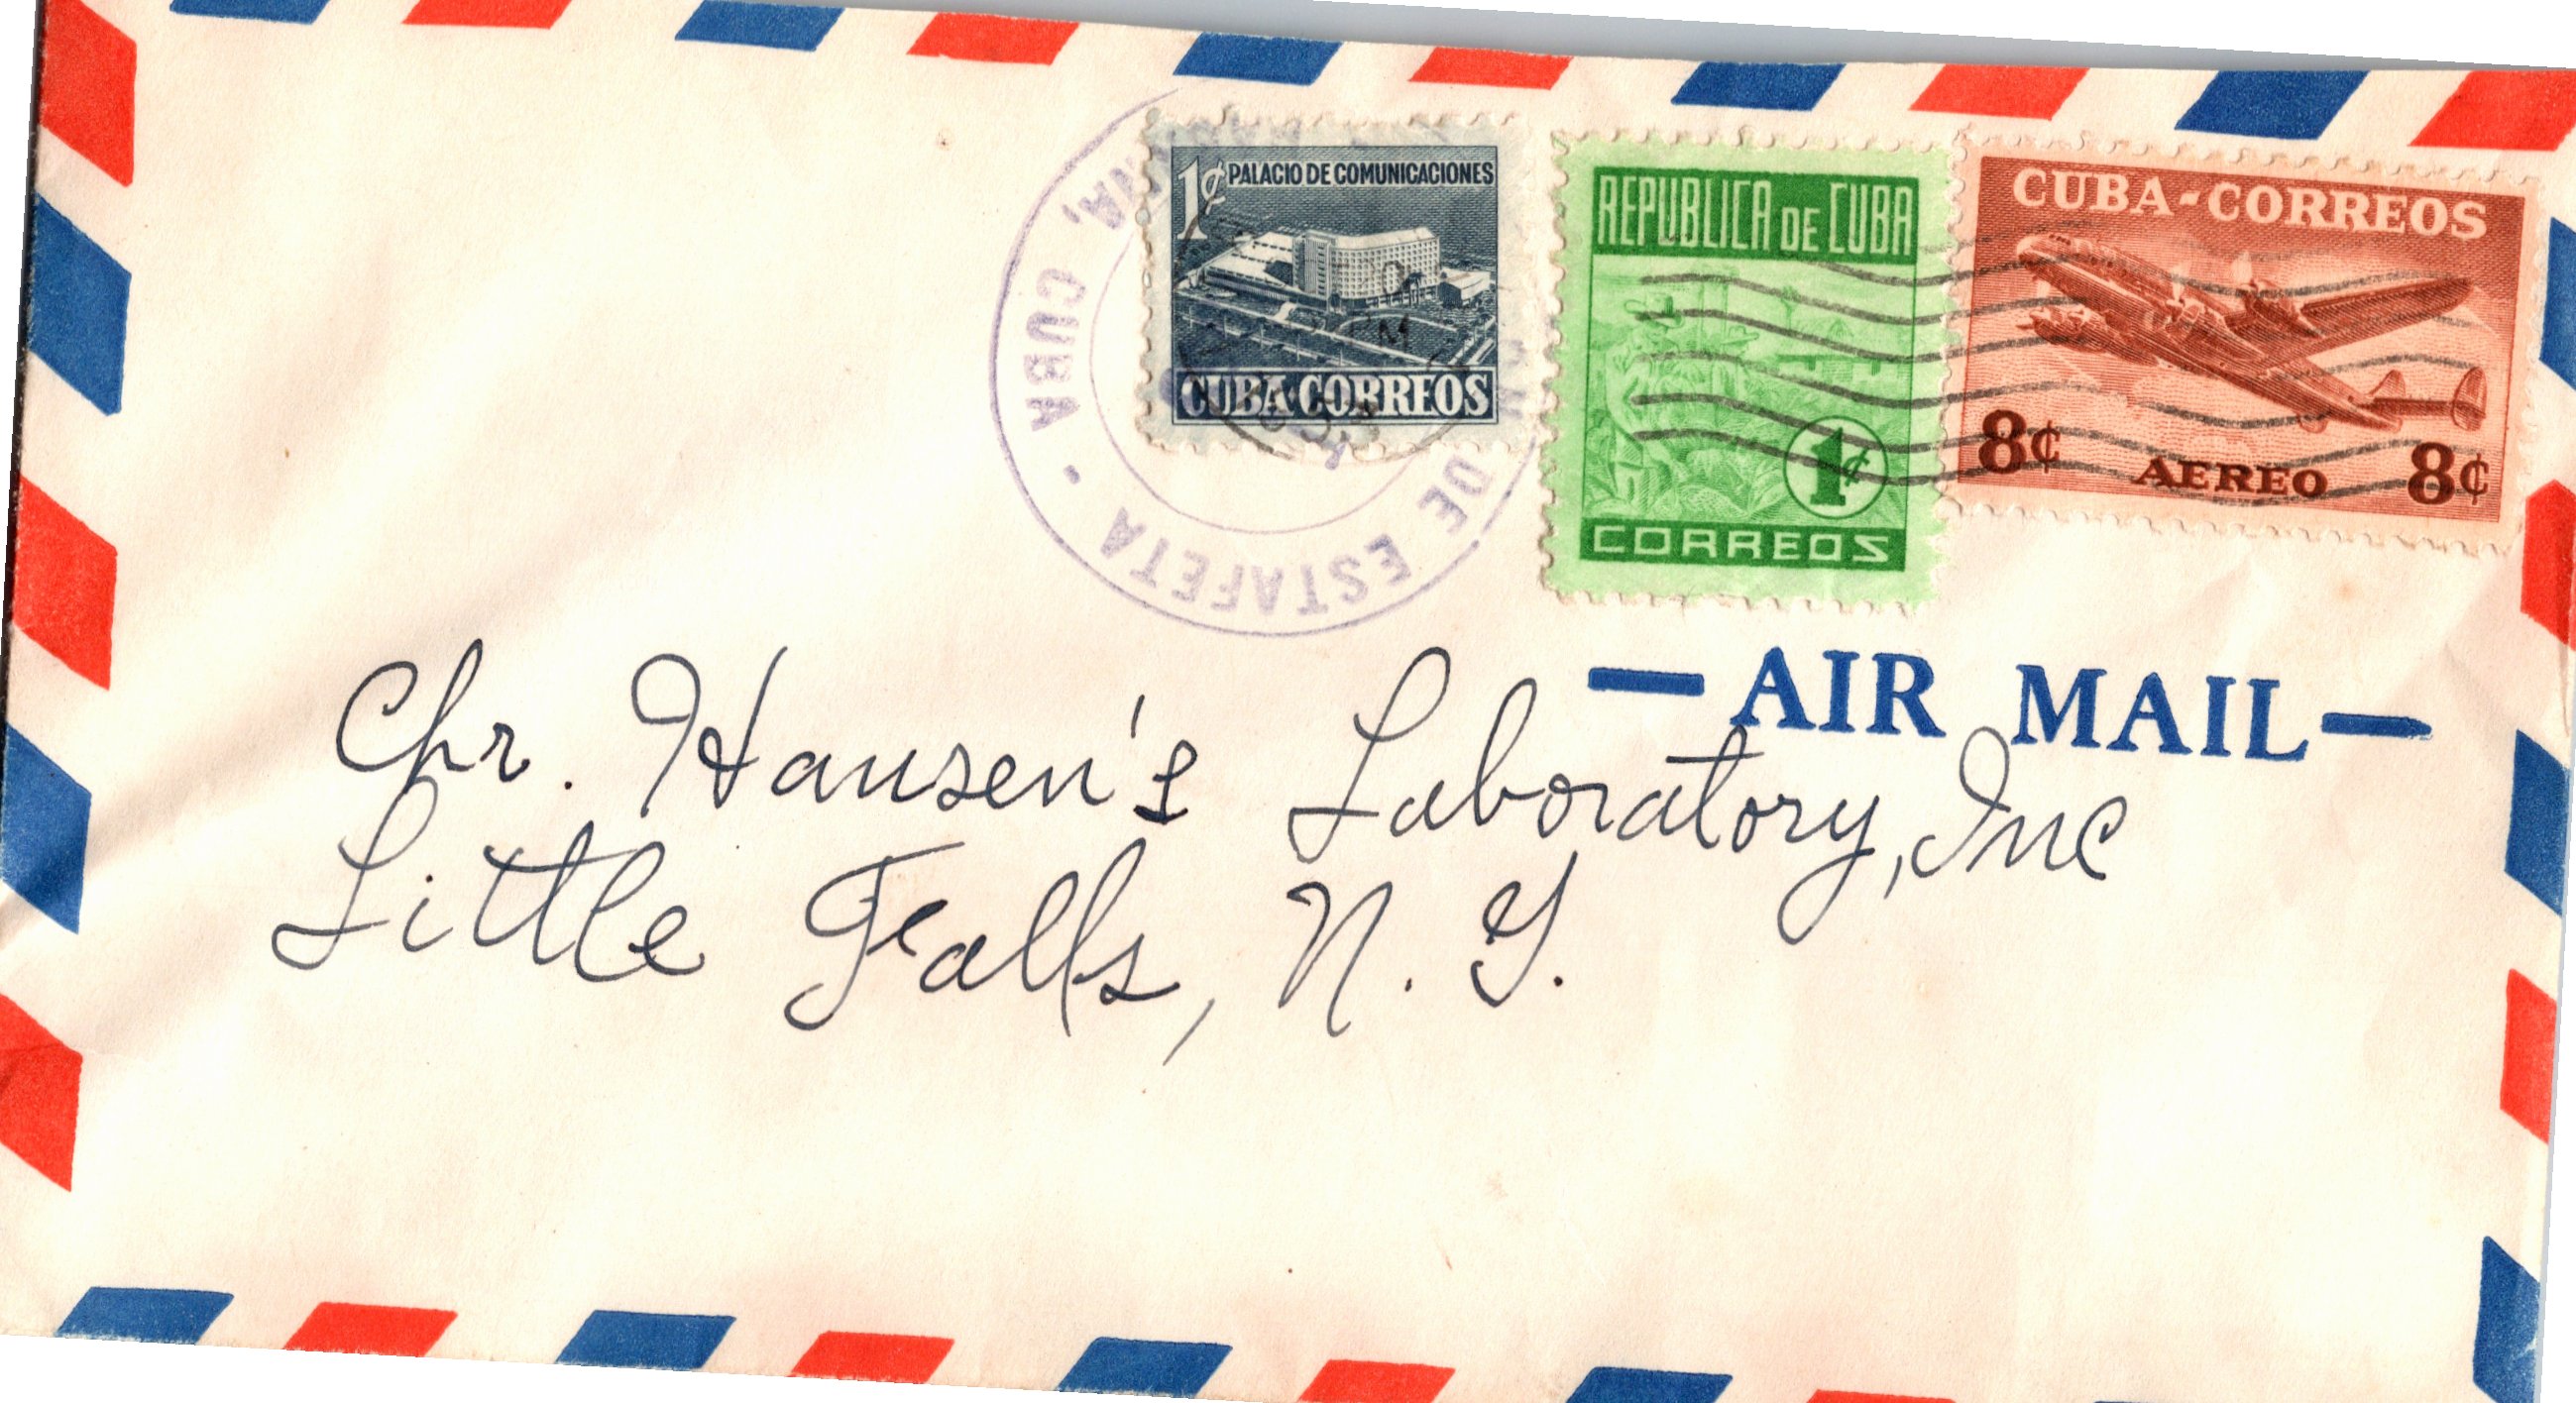 1¢ PALACIO DE COMUNICACIONES
CUBA CORREOS
REPUBLICA DE CUBA
1¢
CORREOS
CUBA-CORREOS
8¢ AEREO 8¢
CUBA - DE ESTAFETA
— AIR MAIL —
Chr. Hansen's Laboratory, Inc
Little Falls, N. Y.